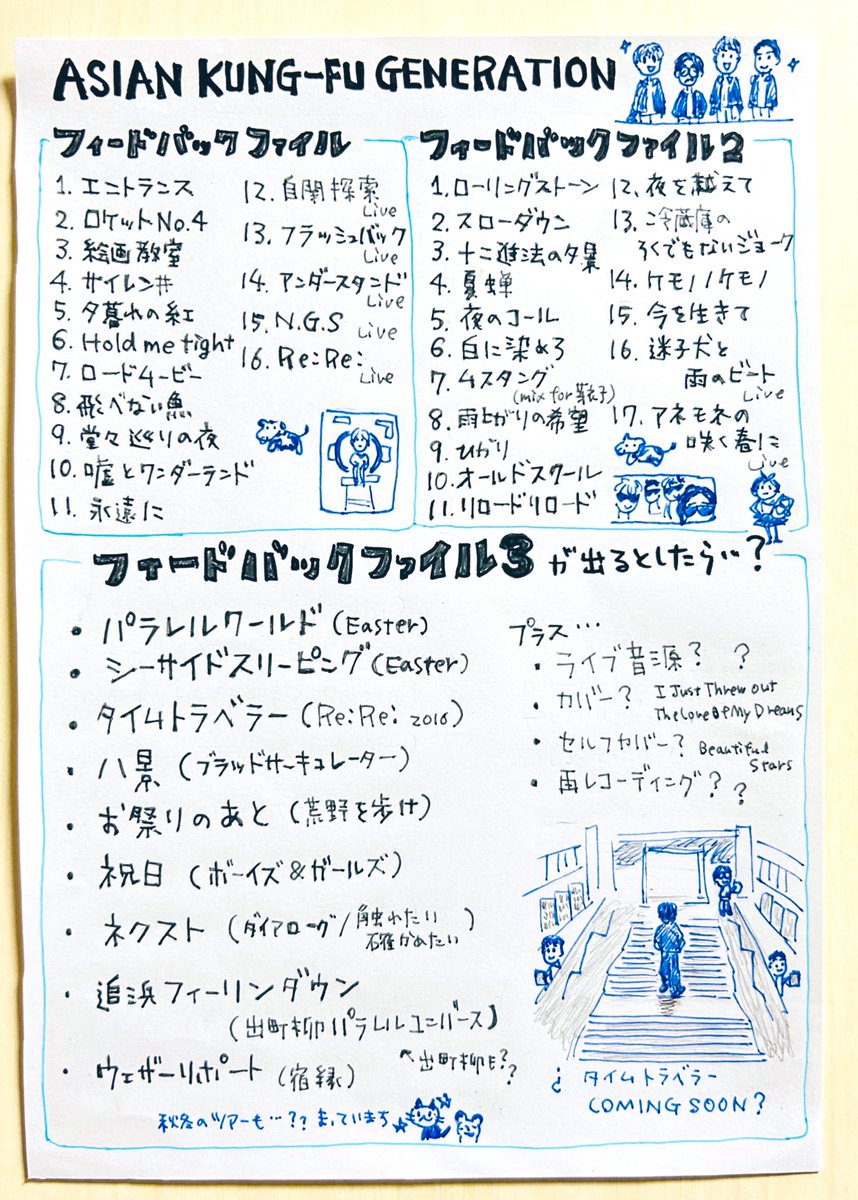 ASIAN KUNG-FU GENERATION
フィードバックファイル
1. エントランス
2. ロケットNo.4
3. 絵画教室
4. サイレン#
5. 夕暮れの紅
6. Hold me tight
7. ロードムービー
8. 飛べない魚
9. 堂々巡りの夜
10. 嘘とワンダーランド
11. 永遠に
12. 自閉探索
Live
13. フラッシュバック
Live
14. アンダースタンド
Live
15. N.G.S Live
16. Re:Re:
Live
フィードバックファイル2
1. ローリングストーン
2. スローダウン
3. 十二進法の夕景
4. 夏蝉
5. 夜のコール
6. 白に染めろ
7. ムスタング
(mix for 芽衣子)
8. 雨上がりの希望
9. ひかり
10. オールドスクール
11. リロードリロード
12. 夜を越えて
13. 冷蔵庫の
ろくでもないジョーク
14. ケモノノケモノ
15. 今を生きて
16. 迷子犬と
雨のビート
Live
17. アネモネの
咲く春に
Live
フィードバックファイル3が出るとしたら…?
・パラレルワールド (Easter)
・シーサイドスリーピング (Easter)
・タイムトラベラー (Re:Re: 2016)
・八景 (ブラッドサーキュレーター)
・お祭りのあと (荒野を歩け)
・祝日 (ボーイズ&ガールズ)
・ネクスト (ダイアローグ/触れたい
確かめたい)
・追浜フィーリンダウン
(出町柳パラレルユニバース)
・ウェザーリポート (宿縁)
↖出町柳E??
秋冬のツアーも…?? まっています
プラス…
・ライブ音源? ?
・カバー? I Just Threw out
The Love Of My Dreams
・セルフカバー? Beautiful
Stars
・再レコーディング? ?
¿ タイムトラベラー
COMING SOON?